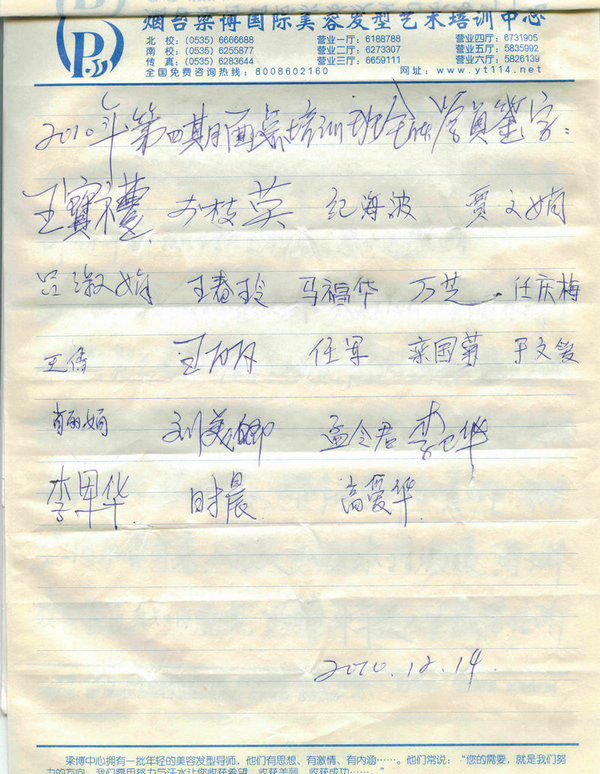 烟台梁博国际美容发型艺术培训中心
北校：(0535) 6666688 营业一厅：6188788 营业四厅：6731905
南校：(0535) 6255877 营业二厅：6273307 营业五厅：5835992
传真：(0535) 6283644 营业三厅：6659111 营业六厅：5826139
全国免费咨询热线：8008602160 网址：www.yt114.net
2010年第四期面部培训班全体学员鉴字：
王寶禮 纪海波 贾文娟
吕淑娟 王春玲 马福华 万芝 任庆梅
王倩 王丽丹 任军 栾国菊
肖丽娟 刘美卿 孟令君 李卫华
李早华 时晨 高爱华
2010.12.14.
梁博中心拥有一批年轻的美容发型导师，他们有思想、有激情、有内涵……。他们常说：“您的需要，就是我们努
力的方向，我们需用努力与汗水让您收获希望、收获美丽、收获成功……。”